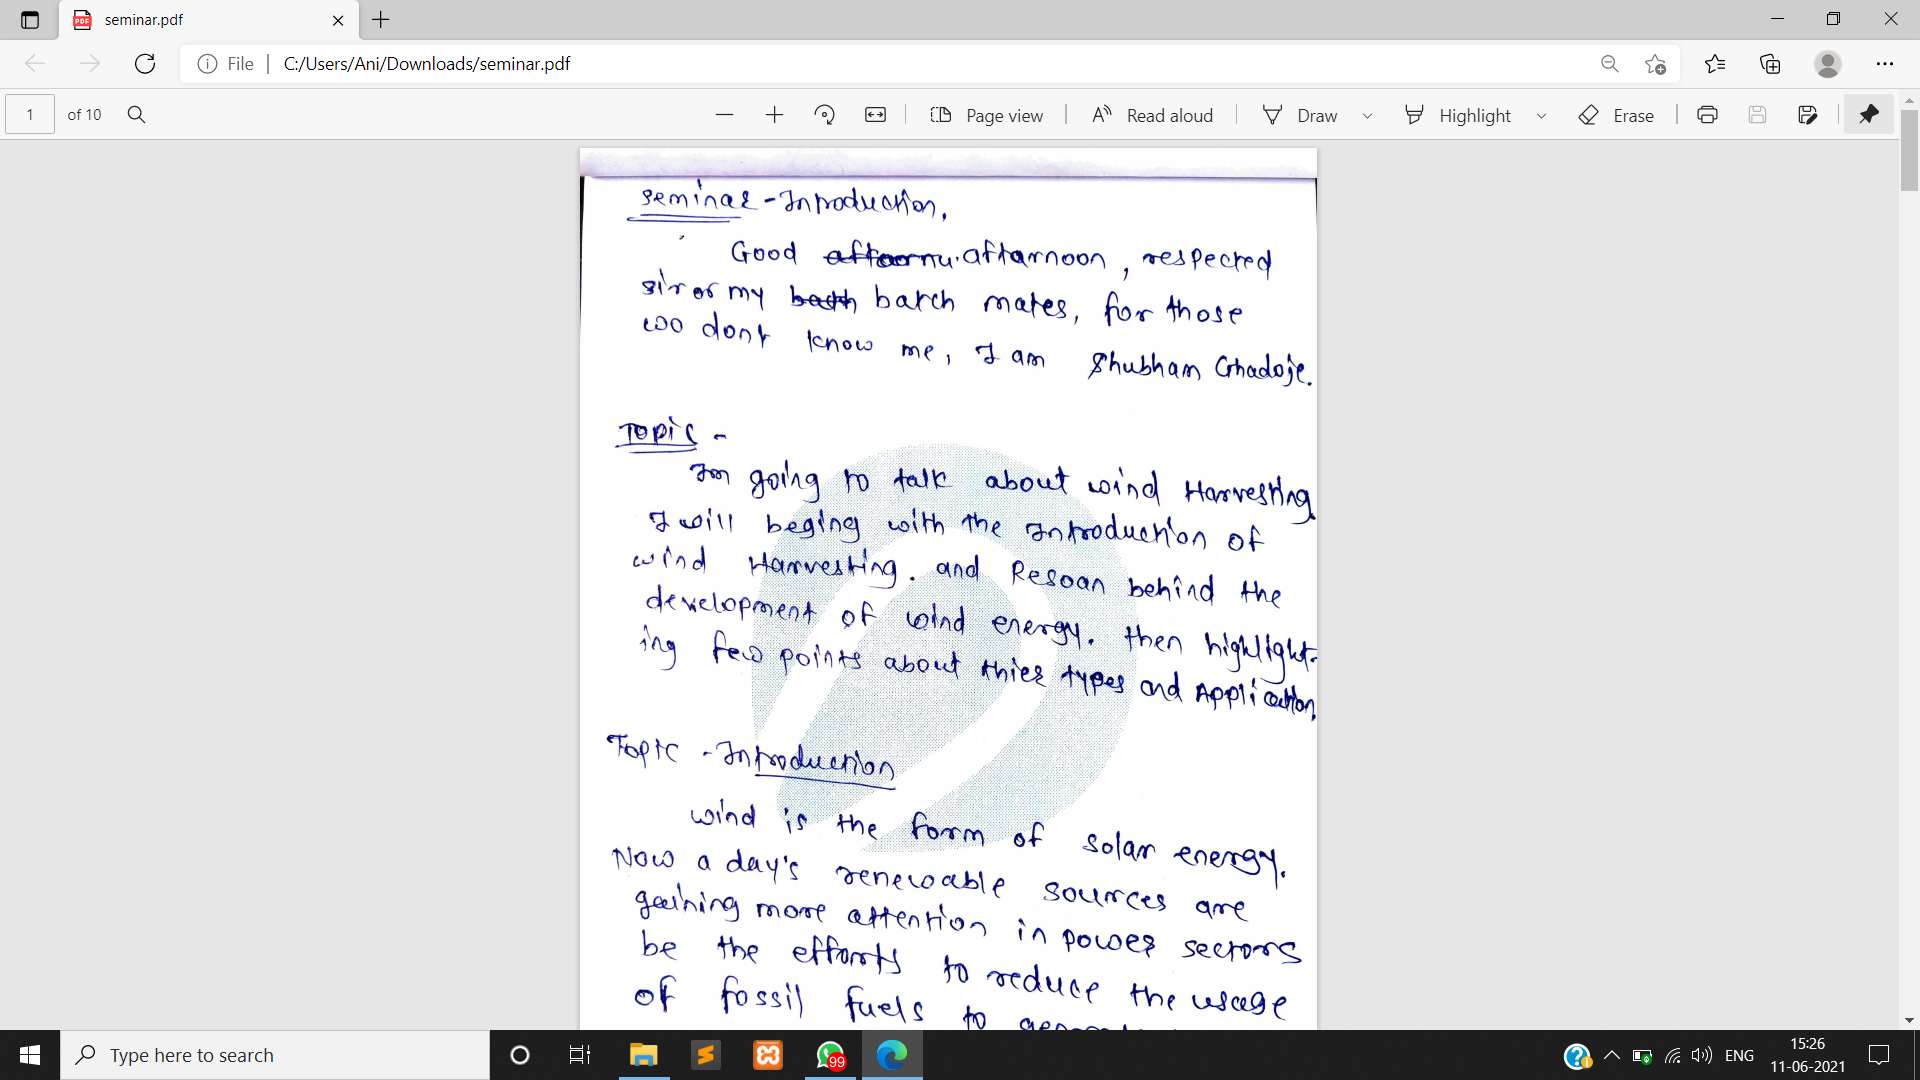 seminar.pdf
File
C:/Users/Ani/Downloads/seminar.pdf
1 of 10
Page view
Read aloud
Draw
Highlight
Erase
seminar - Introduction.
Good afternoon, respected
sir or my batch mates, for those
woo dont know me, I am Shubham Ghadoje.
Topic -
Im going to talk about wind Harvesting.
I will beging with the Introduction of
wind Harvesting. and Resoan behind the
development of wind energy. then highlight-
ing few points about thier types and Application.
Topic - Introduction
wind is the form of solar energy.
Now a day's renewable sources are
gaining more attention in power sectors
be the efforts to reduce the usage
of fossil fuels to
Type here to search
99
ENG
15:26
11-06-2021